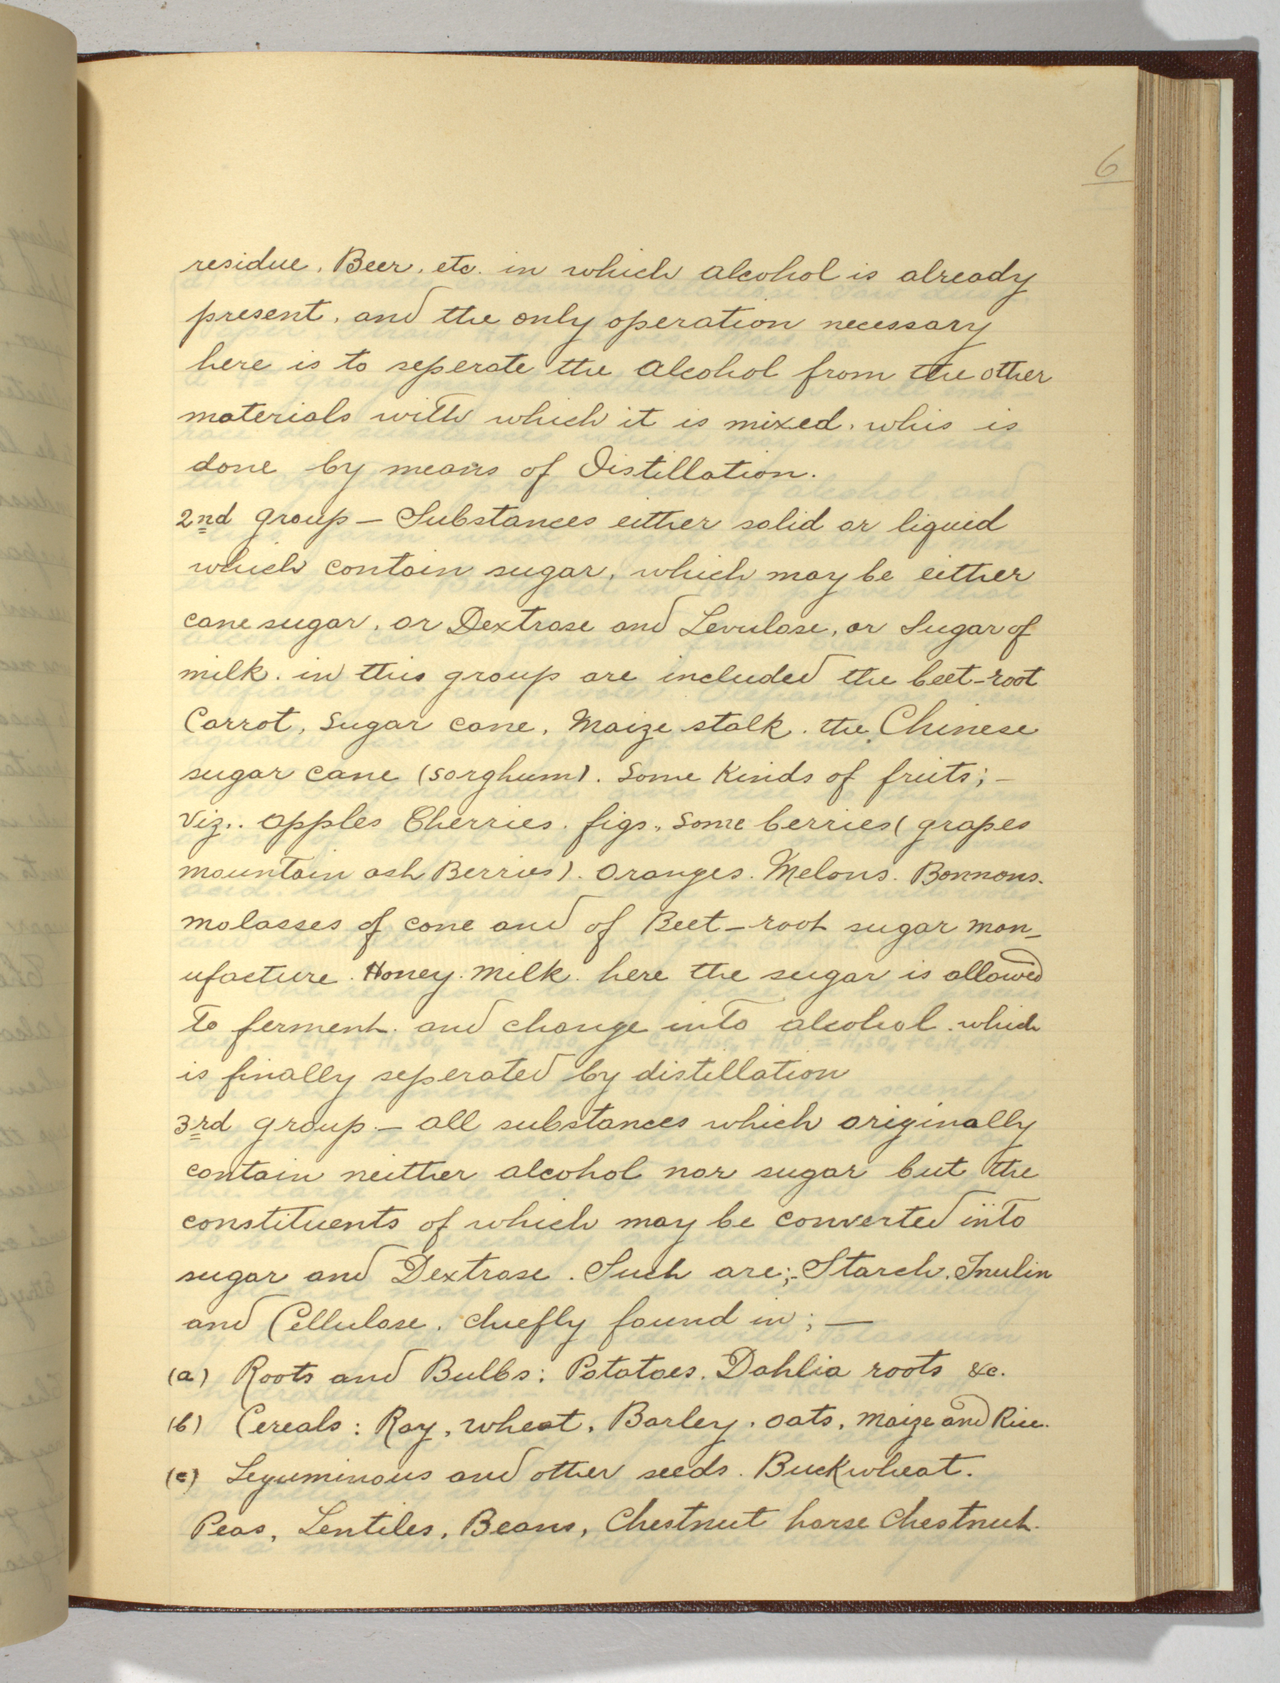 6
residue, Beer, etc. in which alcohol is already
present, and the only operation necessary
here is to seperate the Alcohol from the other
materials with which it is mixed. whis is
done by means of Distillation.
2nd group – Substances either solid or liquid
which contain sugar, which may be either
cane sugar, or Dextrose and Levulose, or Sugar of
milk. in this group are included the beet-root
Carrot, Sugar cane, Maize stalk. the Chinese
sugar cane (sorghum). Some Kinds of fruits; –
Viz.. apples Cherries. figs, Some berries ( grapes
mountain ash Berries). Oranges. Melons.
molasses of cane and of Beet-root sugar man-
ufacture. Honey. milk. here the sugar is allowed
to ferment. and change into alcohol. which
is finally seperated by distillation
3rd group. – all substances which originally
contain neither alcohol nor sugar but the
constituents of which may be converted into
sugar and Dextrose. Such are;- Starch. Inulin
and Cellulose. chiefly found in; —
(a) Roots and Bulbs: Potatoes. Dahlia roots &c.
(b) Cereals: Ray, wheat, Barley, oats, maize and Rice.
(c) Leguminous and other seeds. Buckwheat.
Peas, Lentiles, Beans, Chestnut horse Chestnut.